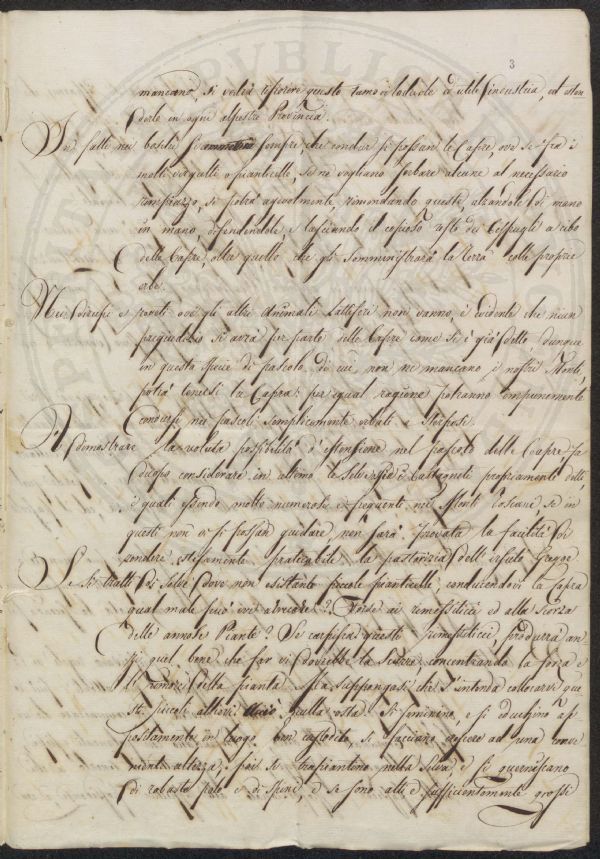 3
mancano, si vedrà rifiorire questo ramo di lodevole ed utile industria, ed esten
derlo in ogni alpestre Provincia.
In fatti nei boschi sempre che condur si possan le Capre, ove se fra i
molti virgulti o pianticelle, se ne vogliano serbare alcune al necessario
rimpiazzo, si potrà agevolmente, rimondando queste, alzandole di mano
in mano, difendendole, e lasciando il copioso resto dei Cespugli a cibo
delle Capre, oltre quello che gli somministrarà la terra colle proprie
erbe.
Nei Dirupi e graneti ove gli altri Animali Lattiferi non vanno, è evidente che niun
pregiudizio si avrà per parte delle Capre come si è già detto, dunque
in questa specie di pascolo, di cui non ne mancano i nostri Monti,
potrà tenersi la Capra: per egual ragione potranno comunemente
condursi nei pascoli semplicemente erbati e Sterposi.
A dimostrare la voluta possibilità d'estensione nel pascolo delle Capre fa
d'uopo considerare in ultimo le Selve, ossia i Castagneti propriamente detti
i quali essendo molto numerosi e frequenti nei Monti Toscani, se in
questi non vi si possan guidare, non sarà trovata la facilità di
rendere estesamente praticabile la pastorizia dell'irsute Gregge.
Se si tratti di Selve dove non esistano piccole pianticelle, conducendovi la Capra
qual male può ivi arrecare? Forse ai rimessiticci ed alla scorza
delle annose Piante? Se carpisca questi rimessiticci, produrrà an
zi quel bene che far vi dovrebbe la scure concentrando la forza e
il della pianta. Ma suppongasi che s'intenda collocarvi que
sti piccoli allievi. nulla osta. Si seminino, e si educhino ap
positamente in luogo ben custodito, si facciano crescere ad una conve
niente altezza, poi si trapiantino nella Selva, e si guerniscano
di robusto palo e di spine, e se sono alti e sufficientemente grossi